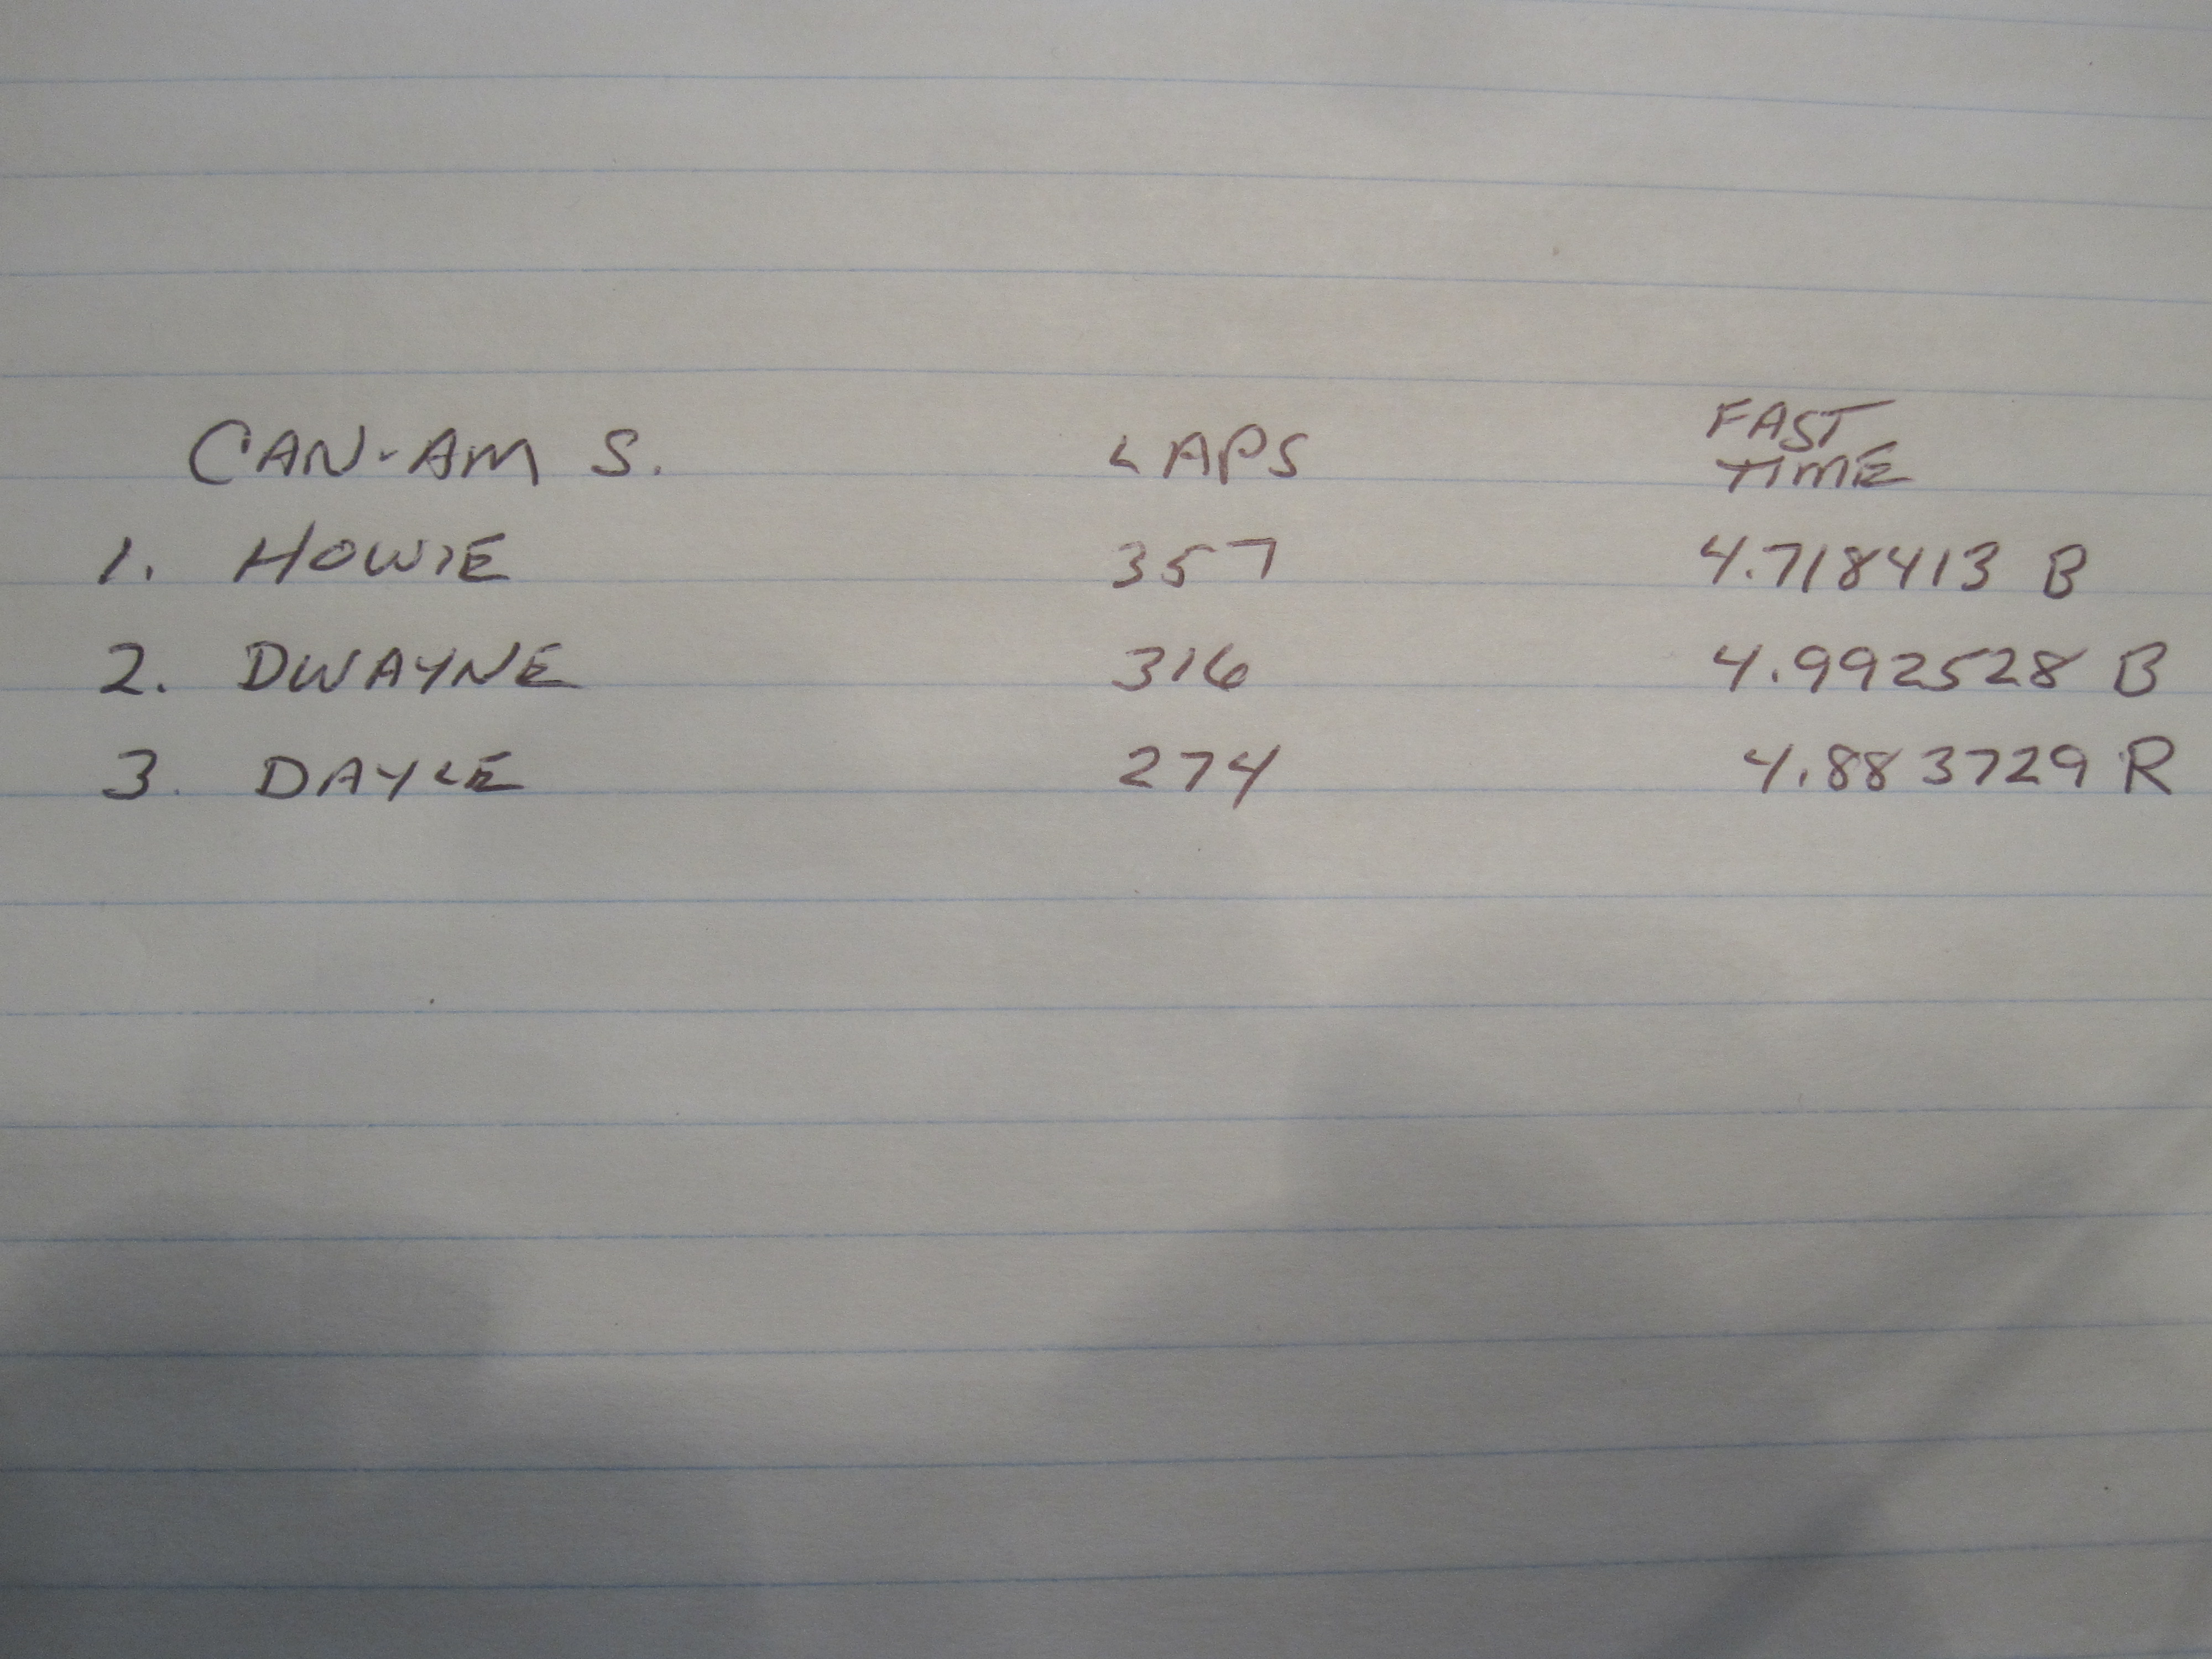 CAN-AM S. LAPS FAST TIME
1. HOWIE 357 4.718413 B
2. DWAYNE 316 4.992528 B
3. DAYLE 274 4.883729 R